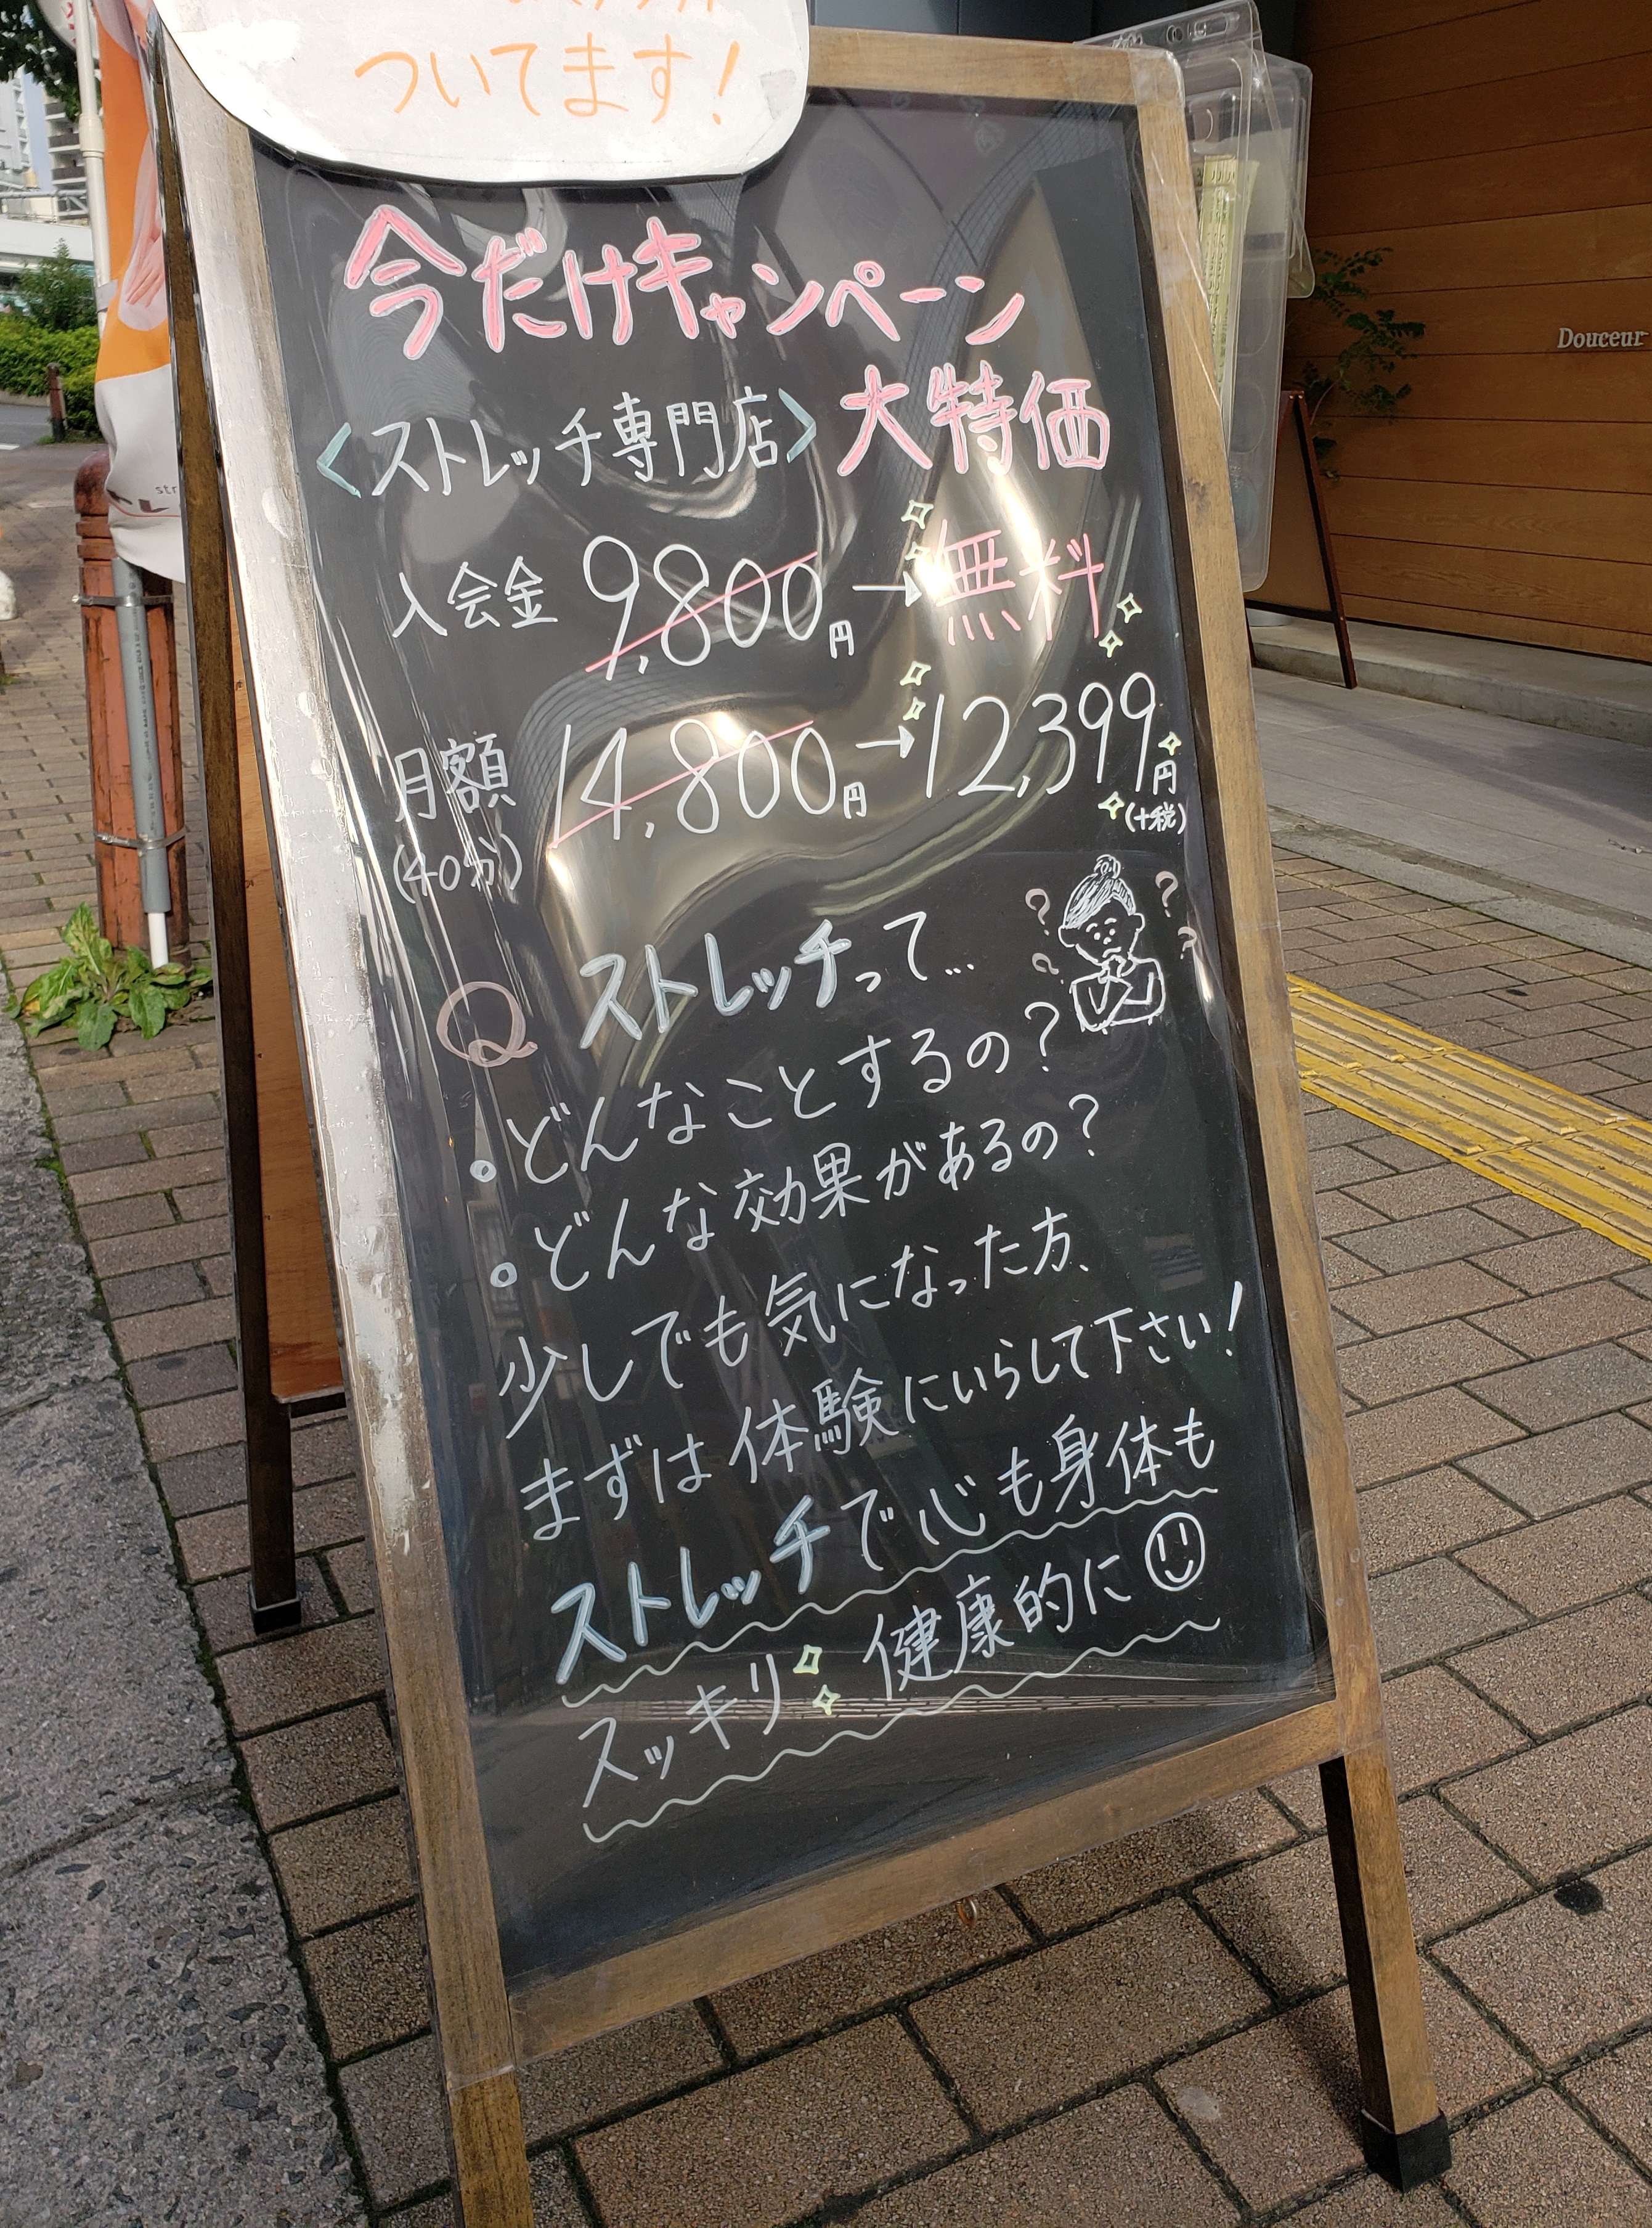 ついてます!
今だけキャンペーン
<ストレッチ専門店> 大特価
入会金 9,800円 → 無料
月額 14,800円 → 12,399円
(40分)
(+税)
Q ストレッチって…
・どんなことするの?
・どんな効果があるの?
少しでも気になった方、
まずは体験にいらして下さい!
ストレッチで心も身体も
スッキリ 健康的に
Douceur